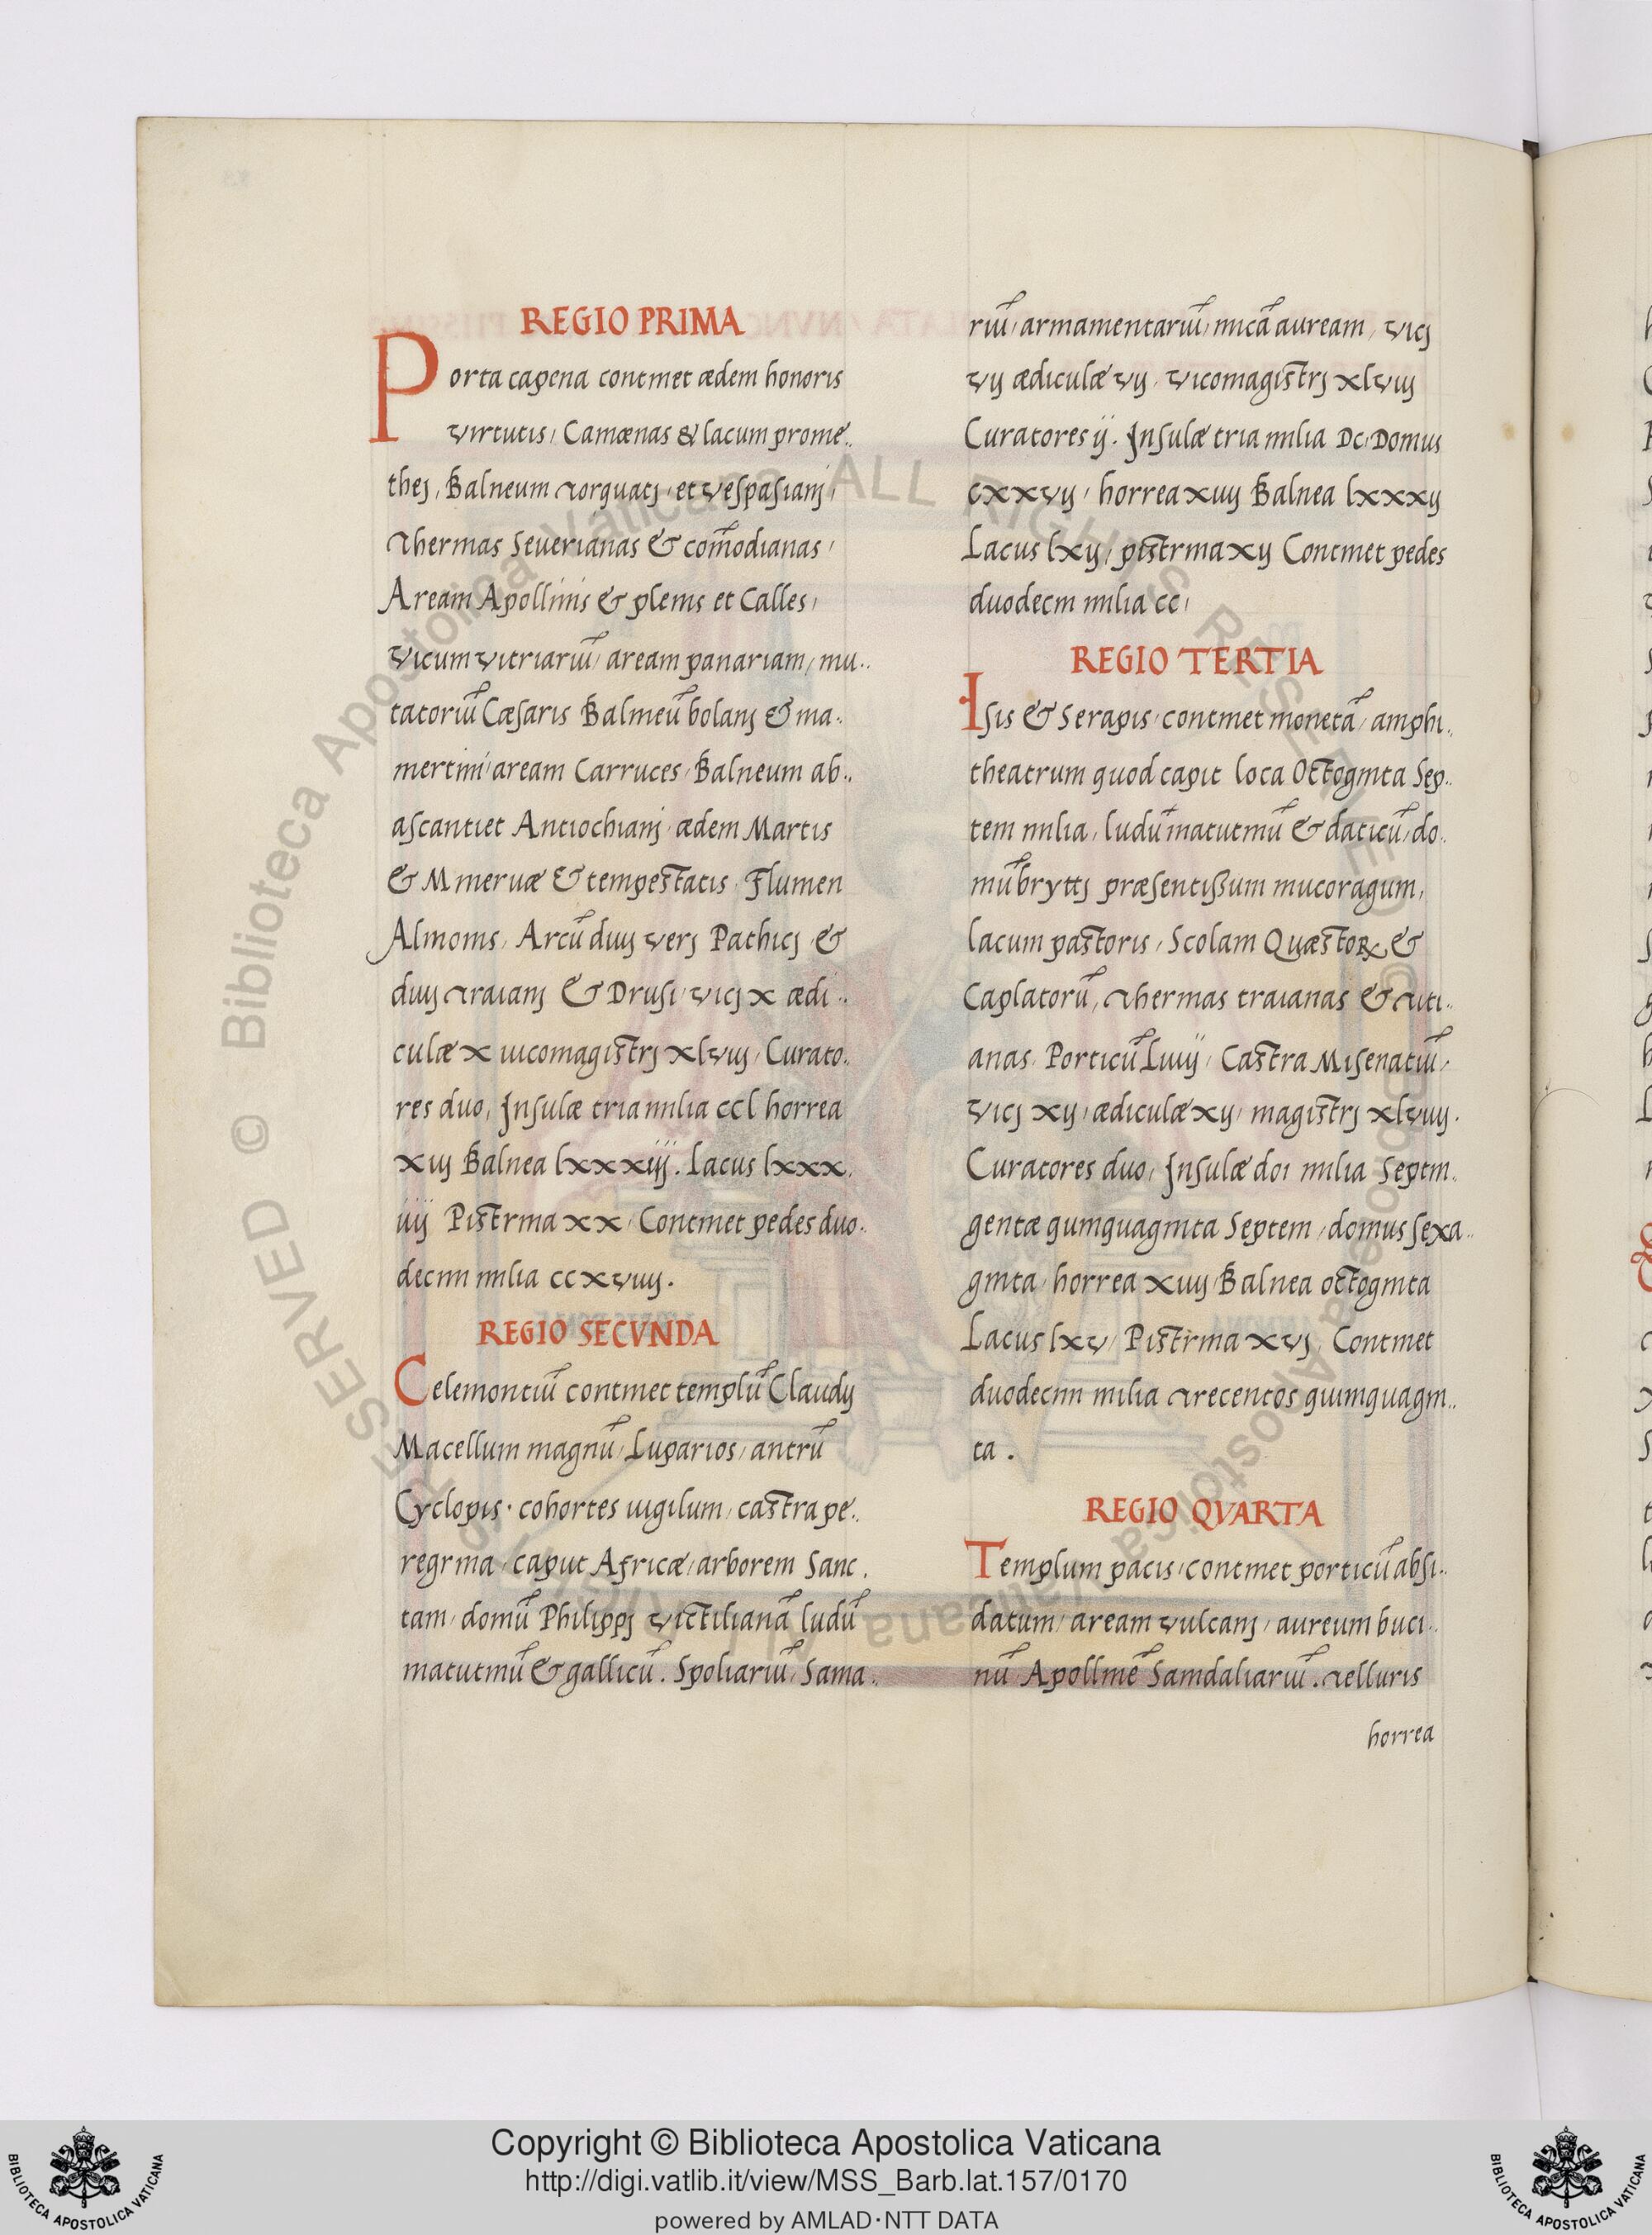 REGIO PRIMA
Porta capena continet ædem honoris
virtutis, Camænas & lacum prome..
thej, Balneum Torquatj, et vespasianj,
Thermas Seuerianas & com̄odianas,
Aream Apollinis & plenis et Calles,
vicum vitriariū, aream panariam, mu..
tatoriū Cæsaris Balineū bolanj & ma..
mertini, aream Carruces, Balneum ab..
ascantiet Antiochianj, ædem Martis
& Mineruæ & tempestatis, Flumen
Almonis, Arcū duij verj Pathicj, &
duij Traianj & Drusi, vicj x ædi..
culæ x uicomagistrj xlviij, Curato..
res duo, Insulæ tria milia ccl horrea
xiij Balnea lxxxiij. Lacus lxxx.
iiij Pistrina xx, Continet pedes duo..
decim milia ccxviiij.
REGIO SECVNDA
Celemontiū continet templū Claudij
Macellum magnū, Luparios, antrū
Cyclopis. cohortes uigilum, castra pe..
regrina, caput Africæ, arborem Sanc.
tam, domū Philippj victilianā ludū
matutinū & gallicū. Spoliariū, Sama..
riū, armamentariū, micā auream, vicj
vij ædiculæ vij, vicomagistrj xlviij
Curatores ij. Insulæ tria milia DC, Domus
cxxvij, horrea xuij Balnea lxxxij
Lacus lxij, pistrina xij Continet pedes
duodecim milia cc,
REGIO TERTIA
Isis & Serapis, continet monetā, amphi..
theatrum quod capit loca Octoginta Sep..
tem milia, ludū matutinū & daticū, do..
mū bryttj præsentissum mucoragum,
lacum pastoris, Scolam Quæstoꝝ &
Caplatorū, Thermas traianas & Titi..
anas, Porticū Luiij, Castra Misenatiū,
vicj xij, ædiculæ xij, magistrj xlviij.
Curatores duo, Insulæ doi milia Septin..
gentæ quinquaginta Septem, domus sexa..
ginta, horrea xuij, Balnea octoginta
Lacus lxv, Pistrina xvj, Continet
duodecim milia Trecentos quinquagin..
ta.
REGIO QVARTA
Templum pacis, continet porticū absi..
datum, aream vulcanj, aureum buci..
nū, Apollinē Samdaliariū. Telluris
horrea
Copyright © Biblioteca Apostolica Vaticana
http://digi.vatlib.it/view/MSS_Barb.lat.157/0170
powered by AMLAD·NTT DATA